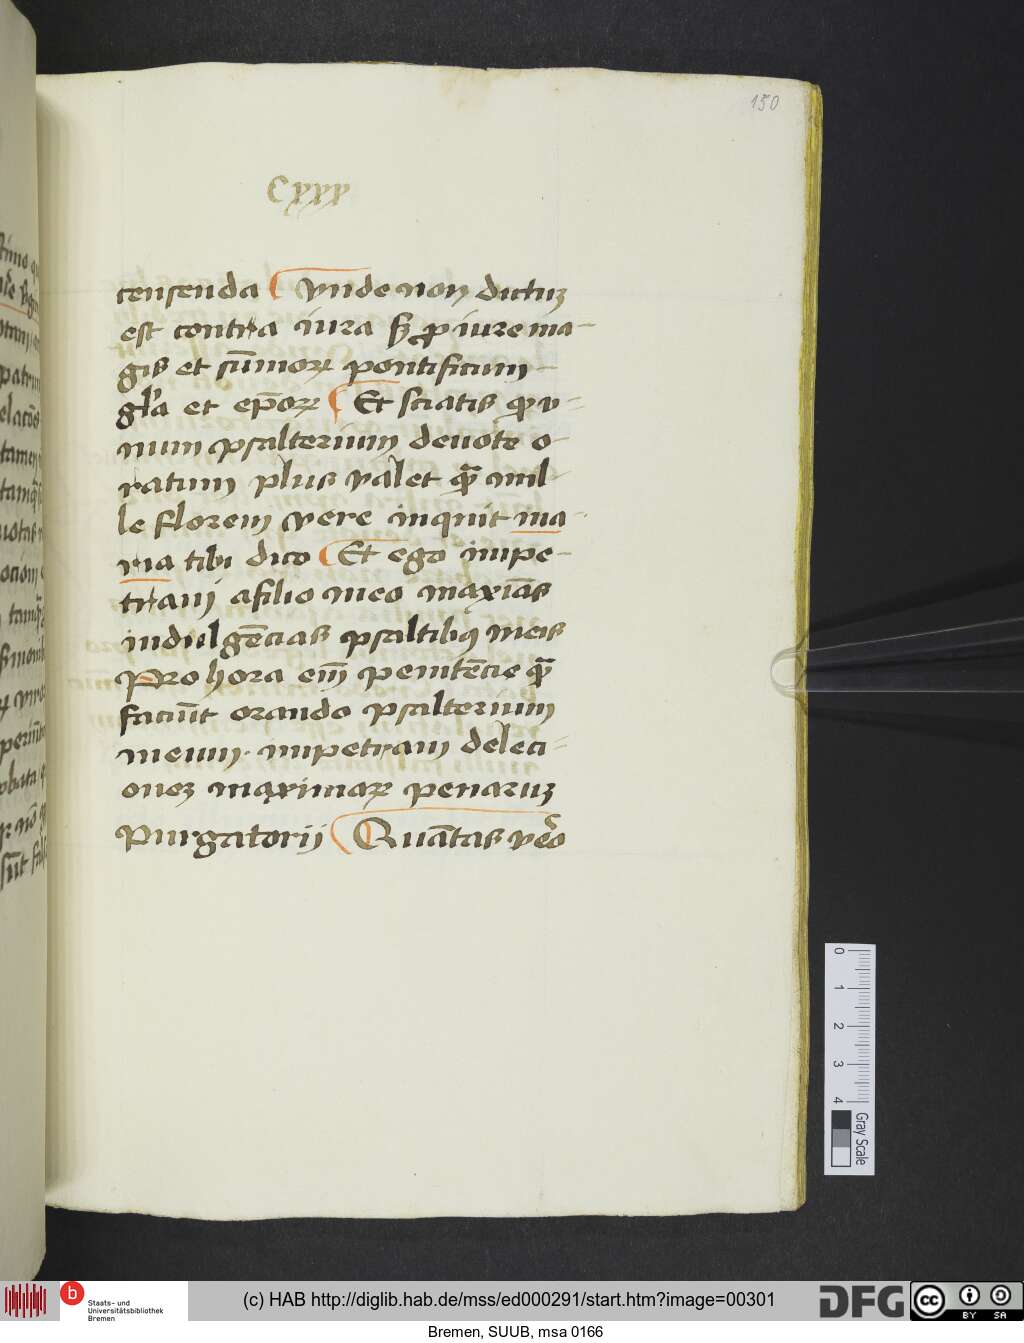 150
Cxxx
censenda Vnde non dictuʒ
est contra iura sꝫ ꝓ iure ma-
gis et sūmoꝝ pontificum -
gl'a et ep̄oꝝ Et sciatis ꝙ v-
num psalterium deuote o-
ratum plus valet qͣꝫ mil-
le florem vere inquit ma-
ria tibi dico Et ego impe-
traui a filio meo maxīas
indulgēcias psaltibꝰ meis
Pro hora em̄ penitēcie qͣꝫ
faciūt orando psalterium
meum. impetraui deleci-
oneʒ maximaꝝ penaruʒ
Purgatorij Quātas veͦo
0
1
2
3
4
Gray Scale
b
Staats- und
Universitätsbibliothek
Bremen
(c) HAB http://diglib.hab.de/mss/ed000291/start.htm?image=00301
DFG
cc
BY SA
Bremen, SUUB, msa 0166